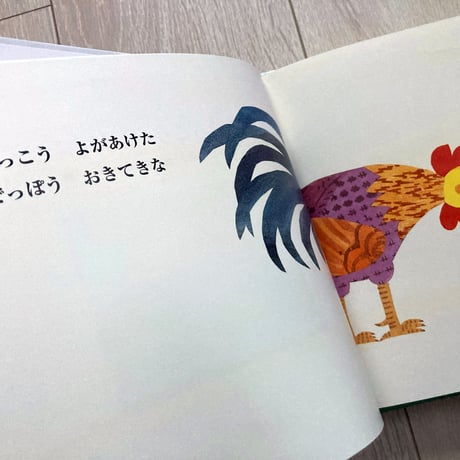 っこう　よがあけた
でっぽう　おきてきな